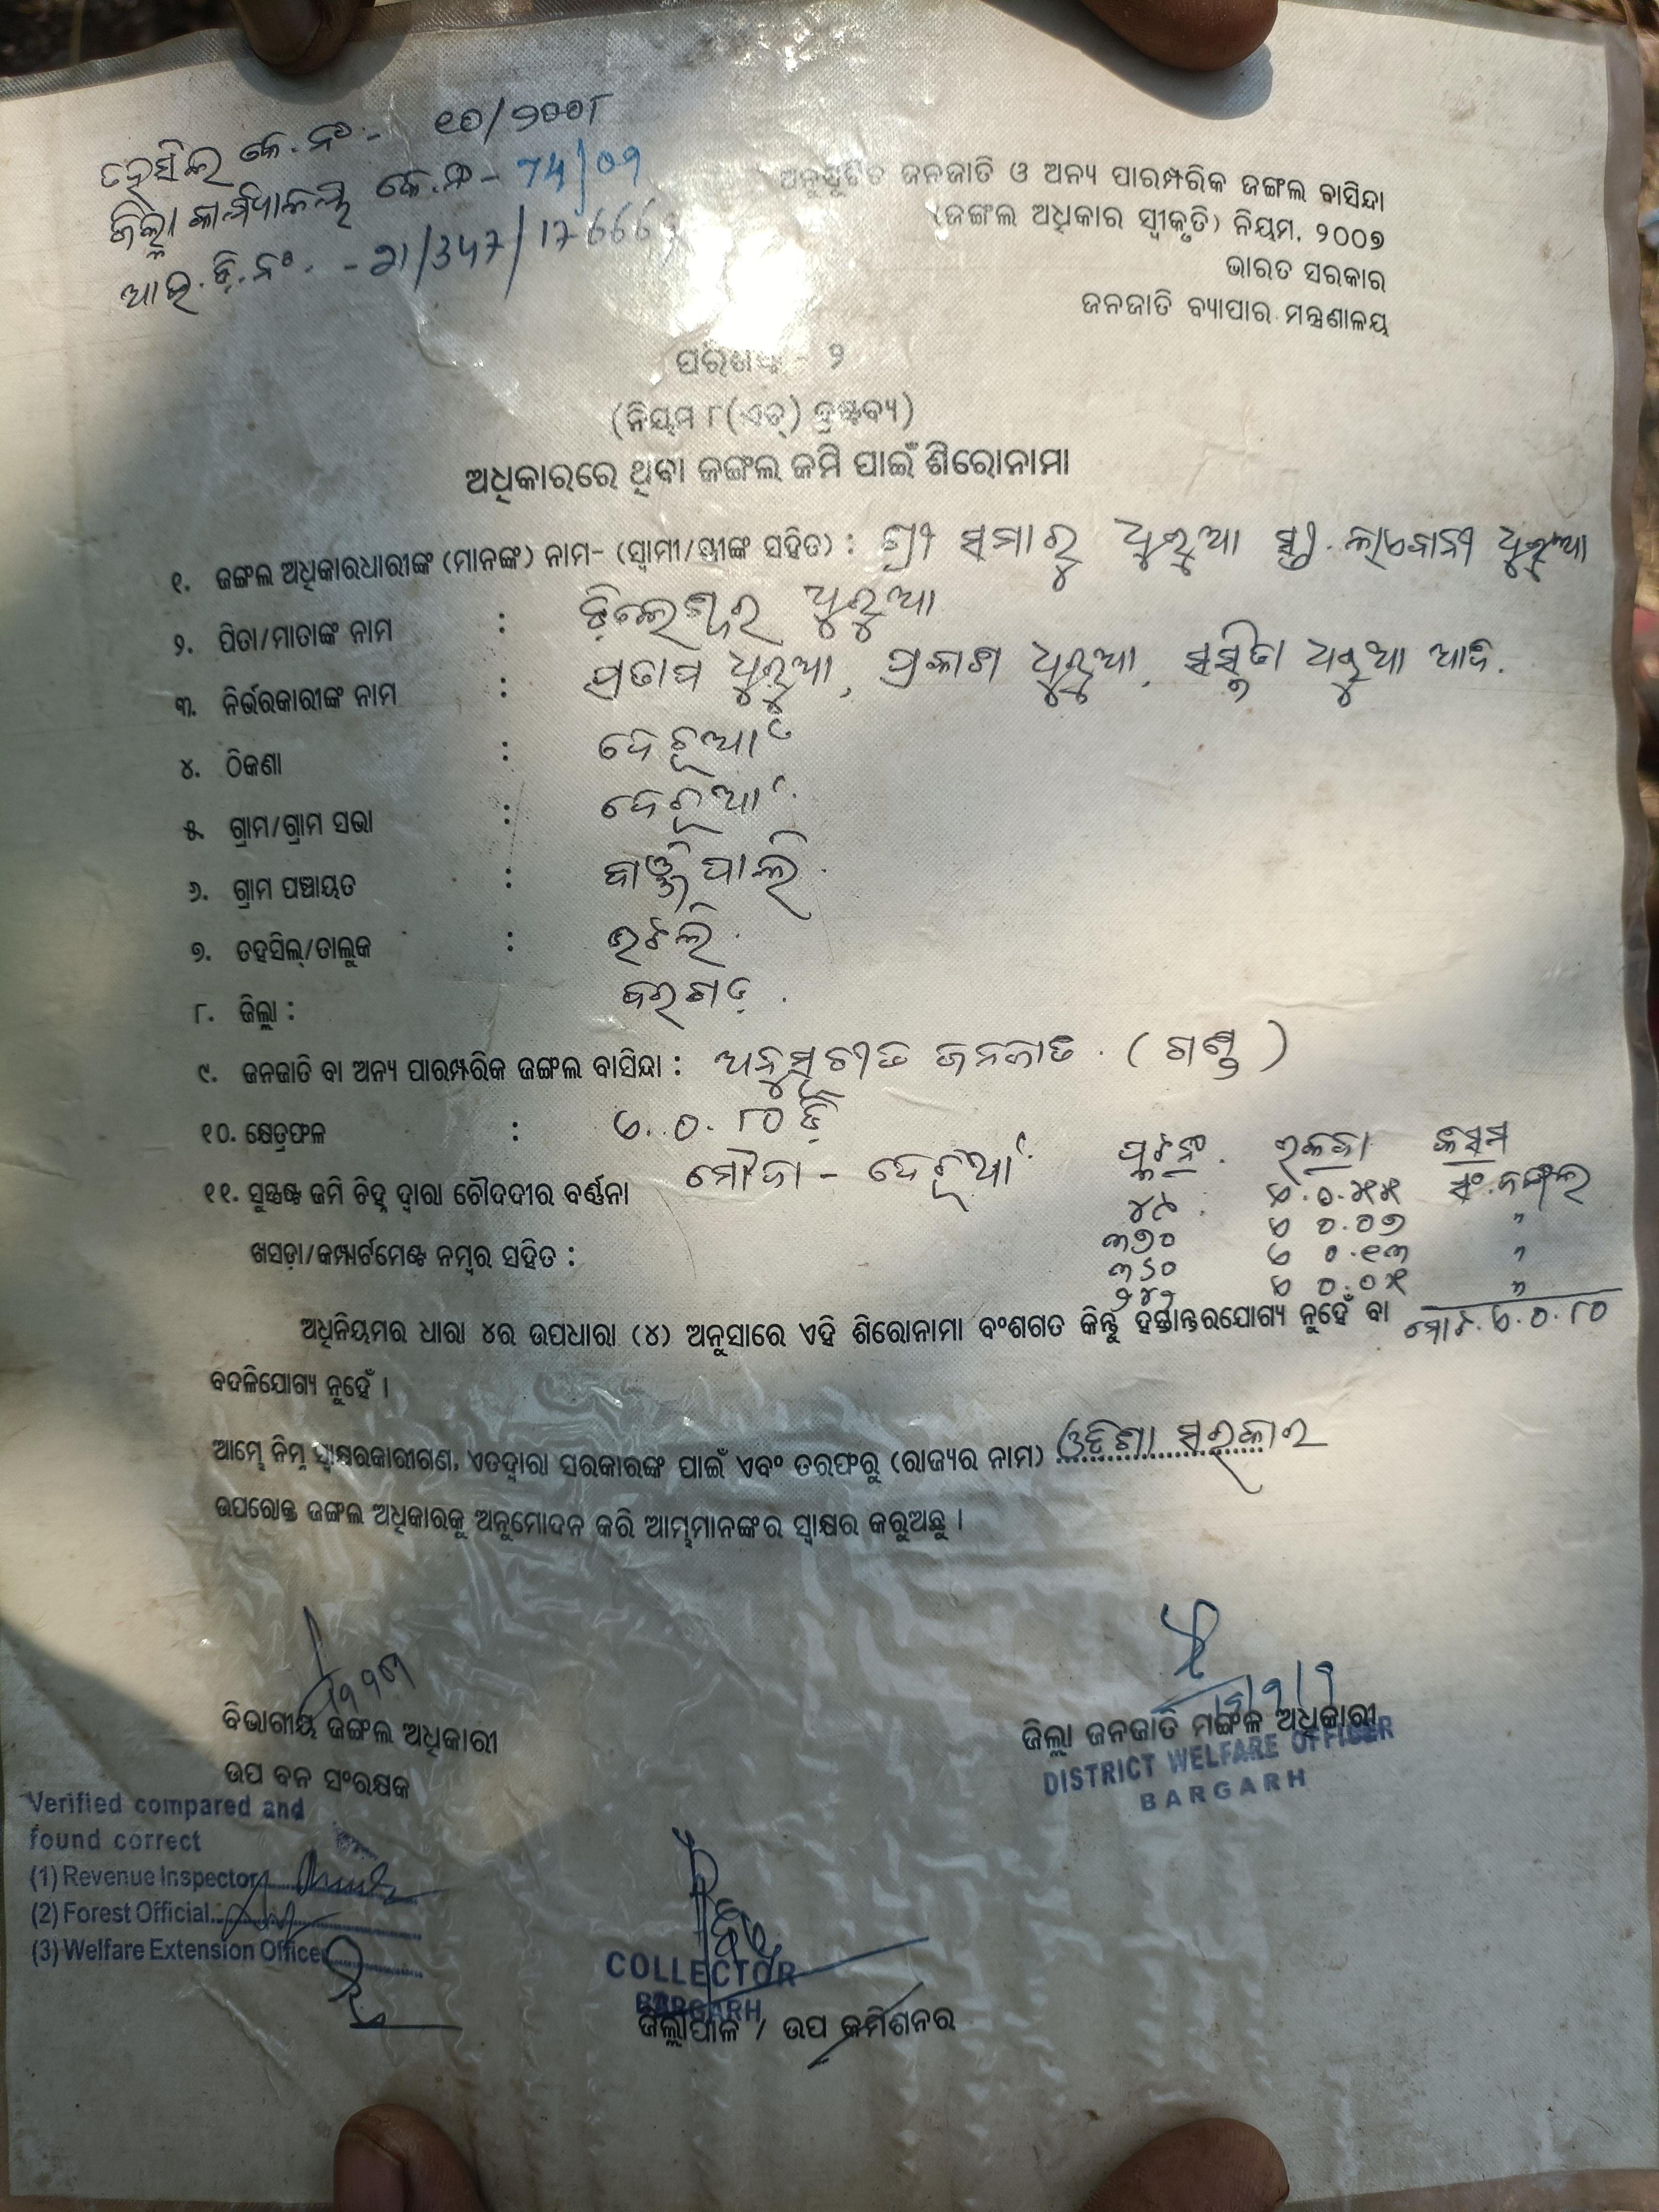 ତହସିଲ କେ.ନଂ - ୧୦/୨୦୦୮
ଜିଲ୍ଲା କାର୍ଯ୍ୟାଳୟ କେ.ନଂ - 74/09
ଆଇ.ଡ଼ି.ନଂ. - 21/347/17666
ଅନୁସୂଚିତ ଜନଜାତି ଓ ଅନ୍ୟ ପାରମ୍ପରିକ ଜଙ୍ଗଲ ବାସିନ୍ଦା
(ଜଙ୍ଗଲ ଅଧିକାର ସ୍ୱୀକୃତି) ନିୟମ, ୨୦୦୭
ଭାରତ ସରକାର
ଜନଜାତି ବ୍ୟାପାର ମନ୍ତ୍ରଣାଳୟ
ପରିଶିଷ୍ଟ - ୨
(ନିୟମ ୮(ଏଚ୍) ଦ୍ରଷ୍ଟବ୍ୟ)
ଅଧିକାରରେ ଥିବା ଜଙ୍ଗଲ ଜମି ପାଇଁ ଶିରୋନାମା
୧. ଜଙ୍ଗଲ ଅଧିକାରଧାରୀଙ୍କ (ମାନଙ୍କ) ନାମ- (ସ୍ୱାମୀ/ସ୍ତ୍ରୀଙ୍କ ସହିତ) : ଶ୍ରୀ ସମାରୁ ଧୁରୁଆ ଧୁରୁଆ
୨. ପିତା/ମାତାଙ୍କ ନାମ : ଧୁରୁଆ
୩. ନିର୍ଭରକାରୀଙ୍କ ନାମ : ପ୍ରତାପ ଧୁରୁଆ, ପ୍ରକାଶ ଧୁରୁଆ, ସସ୍ମିତା ଧରୁଆ ଆଦି.
୪. ଠିକଣା :
୫. ଗ୍ରାମ/ଗ୍ରାମ ସଭା :
୬. ଗ୍ରାମ ପଞ୍ଚାୟତ :
୭. ତହସିଲ୍/ତାଲୁକ : ଭଟଲି.
୮. ଜିଲ୍ଲା : ବରଗଡ଼.
୯. ଜନଜାତି ବା ଅନ୍ୟ ପାରମ୍ପରିକ ଜଙ୍ଗଲ ବାସିନ୍ଦା : ଅନୁସୂଚୀତ ଜନଜାତି. (ଗଣ୍ଡ)
୧୦. କ୍ଷେତ୍ରଫଳ : ଏ. ୦. ୮୦ ଡ଼ି
୧୧. ସୁସ୍ପଷ୍ଟ ଜମି ଚିହ୍ନ ଦ୍ୱାରା ଚୌଦଦୀର ବର୍ଣ୍ଣନା ମୌଜା - ପ୍ଲଟନଂ. ରକବା କିସମ
ଖସଡ଼ା/କମ୍ପାର୍ଟମେଣ୍ଟ ନମ୍ବର ସହିତ :
୪୯. ଏ.୦.୫୫ ସଂ.ଜଙ୍ଗଲ
୩୭୦ ଏ ୦.୦୭ "
୩୬୦ ଏ ୦.୧୩ "
୨୪୨ ଏ ୦.୦୫ "
ଅଧିନିୟମର ଧାରା ୪ର ଉପଧାରା (୪) ଅନୁସାରେ ଏହି ଶିରୋନାମା ବଂଶଗତ କିନ୍ତୁ ହସ୍ତାନ୍ତରଯୋଗ୍ୟ ନୁହେଁ ବା ମୋଟ. ଏ.୦.୮୦
ବଦଳିଯୋଗ୍ୟ ନୁହେଁ ।
ଆମ୍ଭେ ନିମ୍ନ ସ୍ୱାକ୍ଷରକାରୀଗଣ, ଏତଦ୍ୱାରା ସରକାରଙ୍କ ପାଇଁ ଏବଂ ତରଫରୁ (ରାଜ୍ୟର ନାମ) ଓଡ଼ିଶା ସରକାର
ଉପରୋକ୍ତ ଜଙ୍ଗଲ ଅଧିକାରକୁ ଅନୁମୋଦନ କରି ଆମ୍ଭମାନଙ୍କର ସ୍ୱାକ୍ଷର କରୁଅଛୁ ।
ବିଭାଗୀୟ ଜଙ୍ଗଲ ଅଧିକାରୀ
ଉପ ବନ ସଂରକ୍ଷକ
ଜିଲ୍ଲା ଜନଜାତି ମଙ୍ଗଳ ଅଧିକାରୀ
DISTRICT WELFARE OFFICER
BARGARH
Verified compared and
found correct
(1) Revenue Inspector
(2) Forest Official
(3) Welfare Extension Officer
COLLECTOR
BARGARH
ଜିଲ୍ଲାପାଳ / ଉପ କମିଶନର